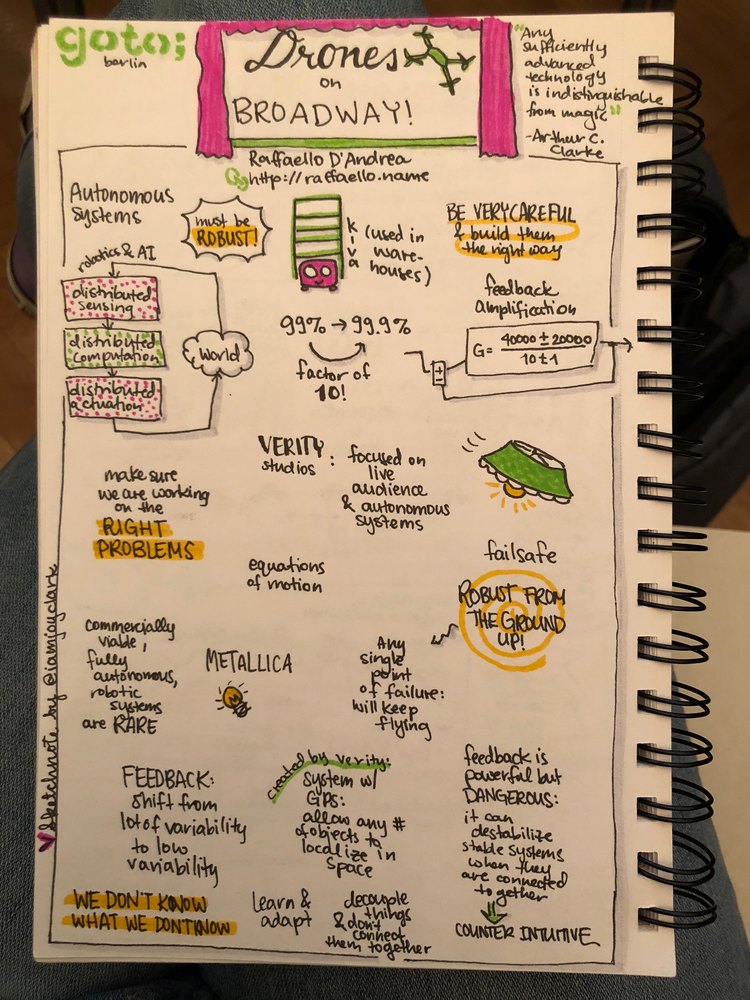 goto;
berlin
Drones
on
BROADWAY!
"Any
sufficiently
advanced
technology
is indistinguishable
from magic"
-Arthur C.
Clarke
Raffaello D'Andrea
http://raffaello.name
Autonomous
Systems
must be
ROBUST!
kiva
(used in
ware-
houses)
BE VERY CAREFUL
& build them
the right way
robotics & AI
distributed
sensing
distributed
computation
distributed
actuation
world
99% → 99.9%
factor of
10!
feedback
amplification
±
G = 40000 ± 20000
10 ± 1
make sure
we are working
on the
RIGHT
PROBLEMS
VERITY
studios:
focused on
live
audience
& autonomous
systems
equations
of motion
failsafe
ROBUST FROM
THE GROUND
UP!
commercially
viable,
fully
autonomous,
robotic
systems
are RARE
METALLICA
Any
single
point
of failure:
will keep
flying
FEEDBACK:
shift from
lot of variability
to low
variability
created by verity:
system w/
GPS:
allow any #
of objects to
localize in
space
feedback is
powerful but
DANGEROUS:
it can
destabilize
stable systems
when they
are connected
together
COUNTER INTUITIVE
WE DON'T KNOW
WHAT WE DON'T KNOW
learn &
adapt
decouple
things
& don't
connect
them together
sketchnote by @iamjayclark